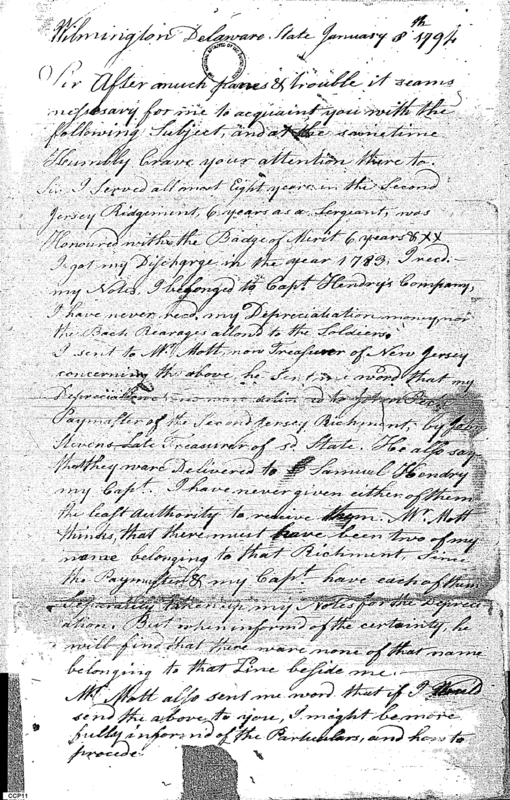 Wilmington Delaware State January 8th 1794
Sir After a much panes & trouble it seams
nessesary for me to acquaint you with the
following Subject, and at the sametime
Humbly Crave your attention there to.
Sir I Served all most Eight years in the Second
Jersey Ridgement, 6 years as a Sergeant, was
Honoured with the Badge of Merit 6 years & XX
I got my Discharge in the year 1783, I recd.
my Notes. I belonged to Capt Hendry's Company,
I have never recd. my Depreciation money, nor
the Back Rearages allond to the Soldiers.
I sent to Mr. Mott, now Treasurer of New Jersey
concerning the above, he Sent me word that my
Depreciation were delivered to John
Paymaster of the Second Jersey Richment, by John
Stevens Late Treasurer of sd State. He also say
that they ware Delivered to Samuel Hendry
my Capt. I have never given either of them
the least authority to receive them. Mr. Mott
thinks, that there must have been two of my
name belonging to that Richment, Since
the Paymaster & my Capt have each of them
Separatily taken up my Notes for the Depreci-
ation. But when informd of the certainty, he
will find that there ware none of that name
belonging to that Line beside me.
Mr. Mott also sent me word that if I Would
send the above to you, I might be more
fully informd of the Particulars, and how to
procede
CCP11